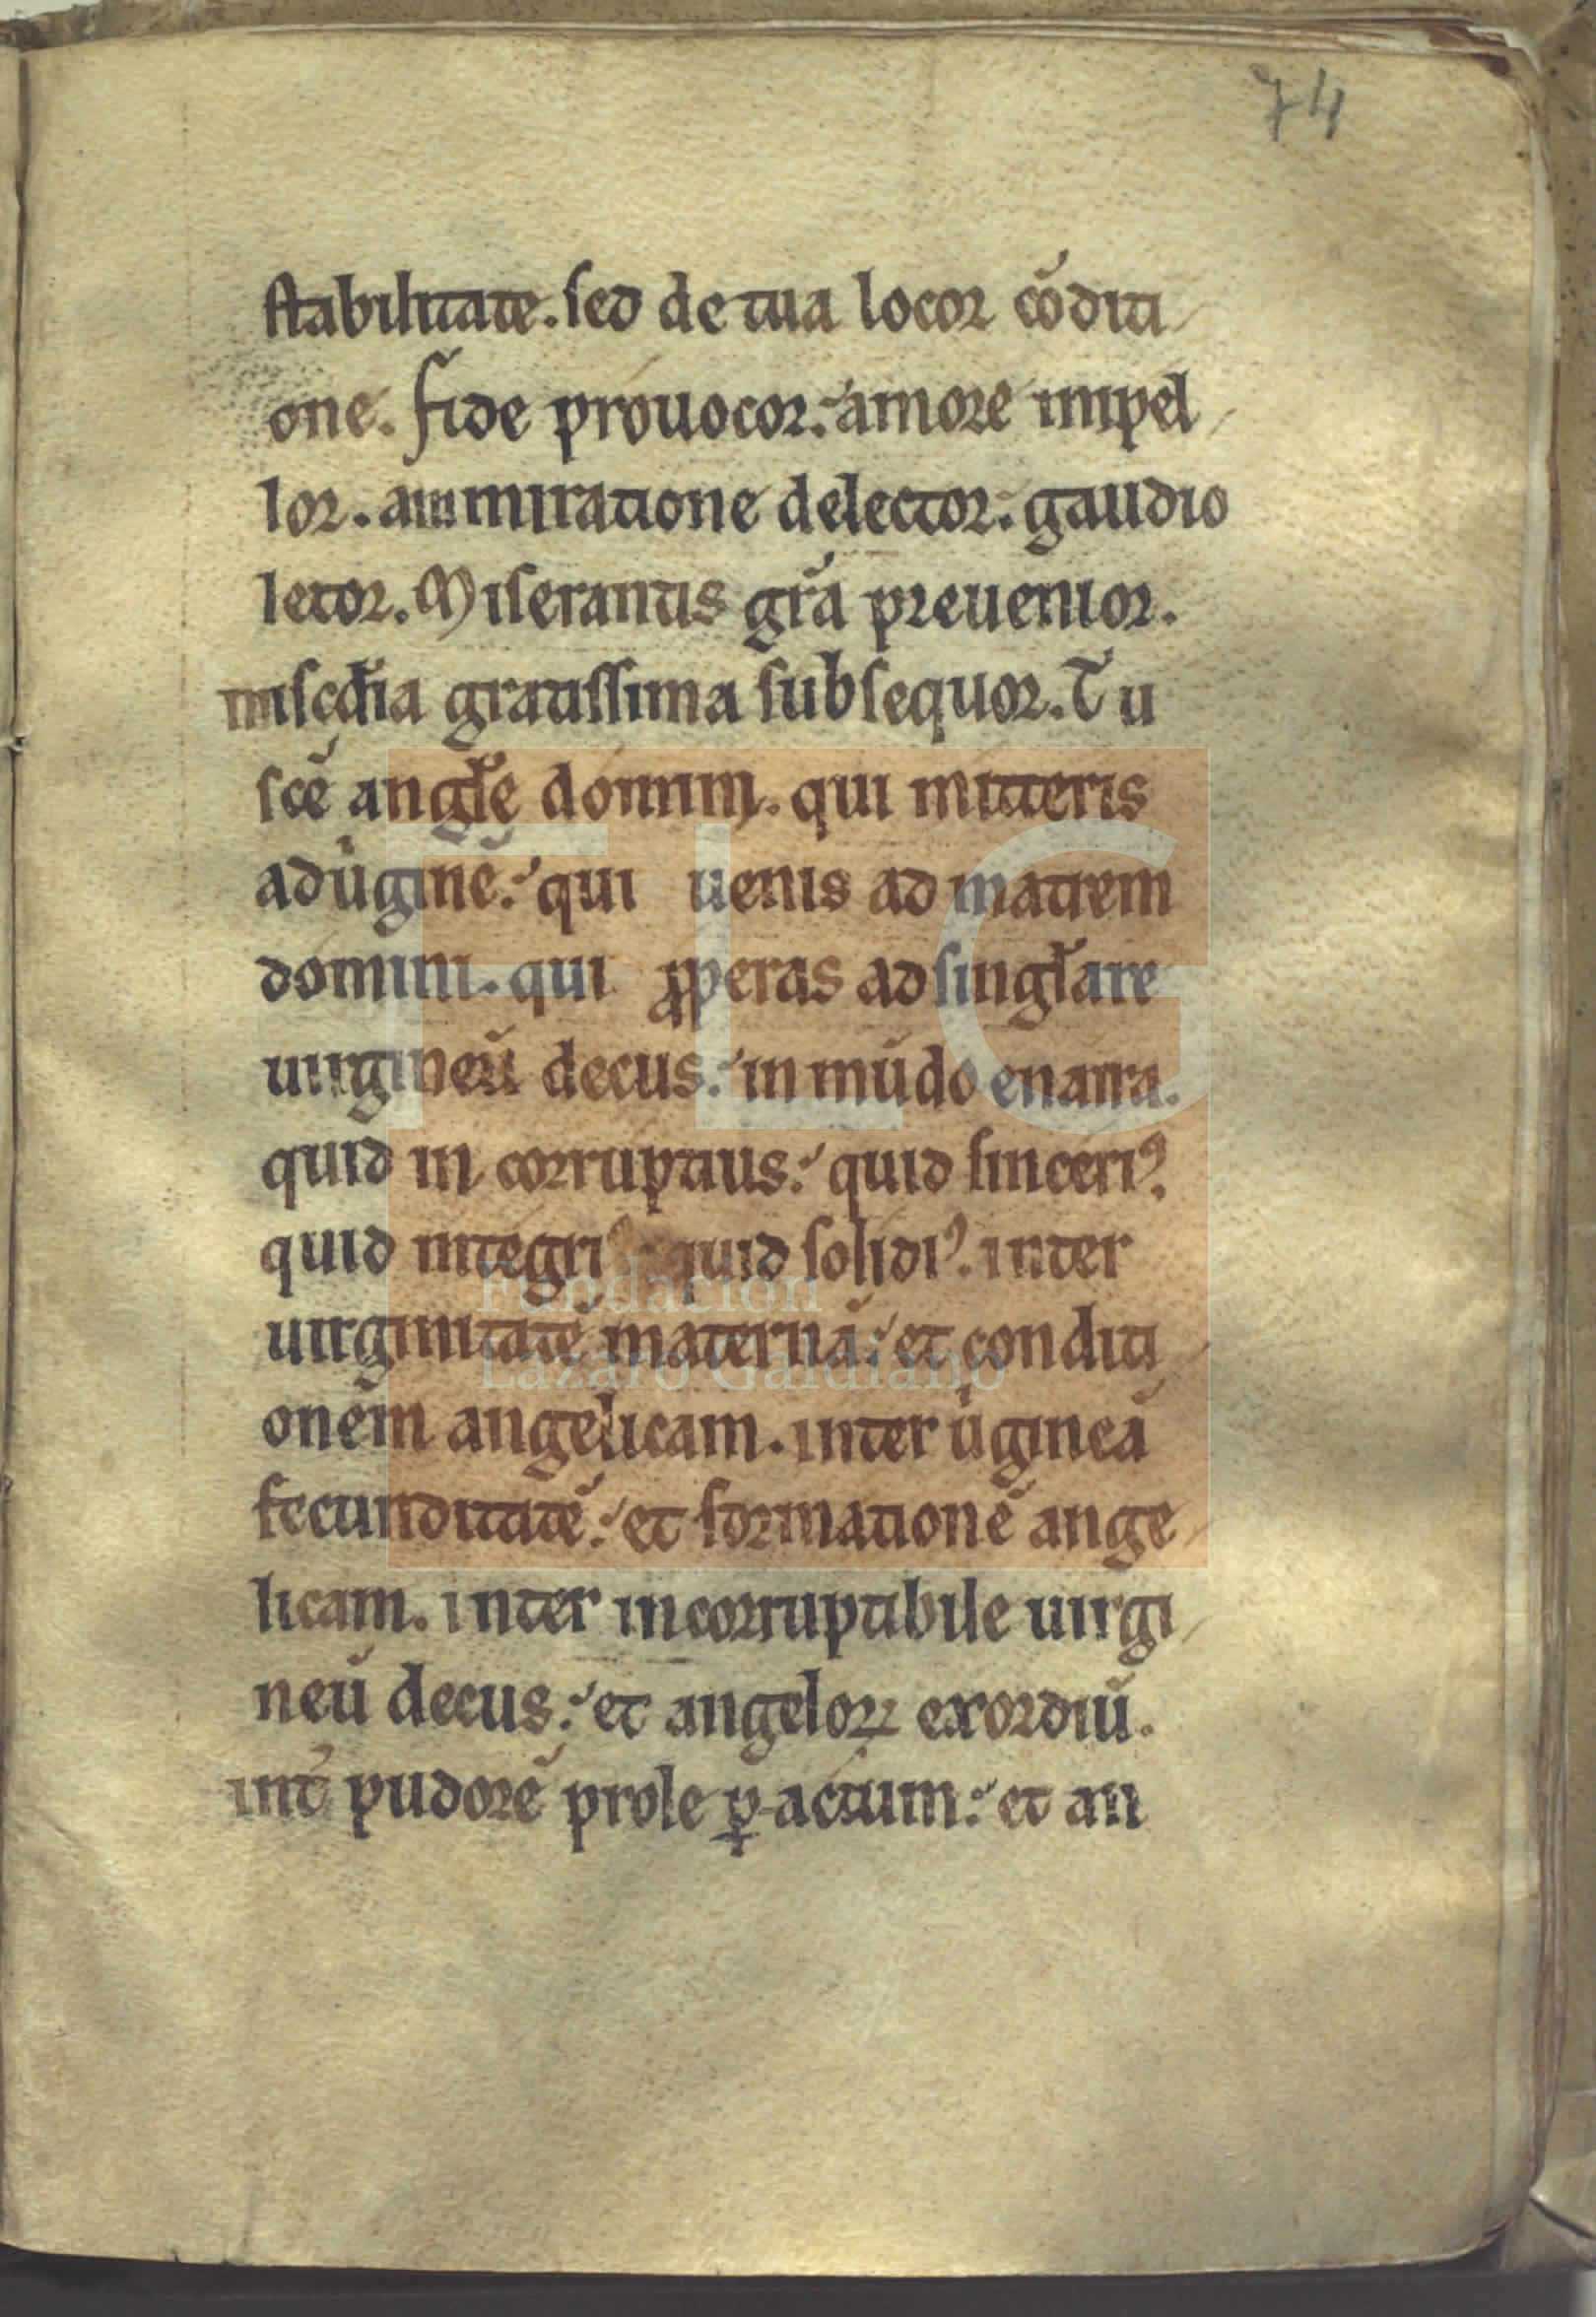 74
stabilitate. sed de tua locor cōditi
one. fide prouocor: amore impel
lor. ammiratione delector: gaudio
letor. Miserantis gr̄a preuenior.
misc̄dia gratissima subsequor. Tu
sc̄e angl̄e domini. qui mitteris
ad uͥginē: qui uenis ad matrem
domini. qui ꝓperas ad singl̄are
uirgineū decus: in mūdo enarra.
quid in corruptius: quid sinceriꝰ.
quid integriꝰ: quid solidiꝰ. inter
uirginitatē maternā: et conditi
onem angelicam. inter uͥgineā
fecunditatē: et formationē ange
licam. inter incorruptibile uirgi
neū decus: et angeloꝝ exordiū.
int̄ pudorē prole ꝑactum: et an
FLG
Fundación
Lázaro Galdiano